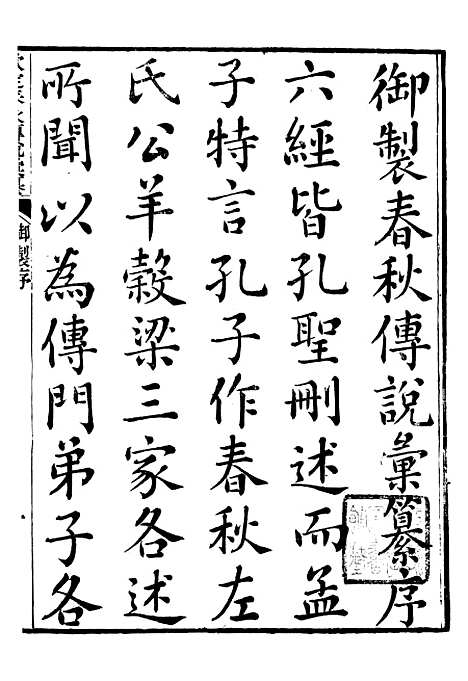 御製春秋傳說彙纂序
六經皆孔聖刪述而孟
子特言孔子作春秋左
氏公羊榖梁三家各述
所聞以為傳門弟子各
御製序